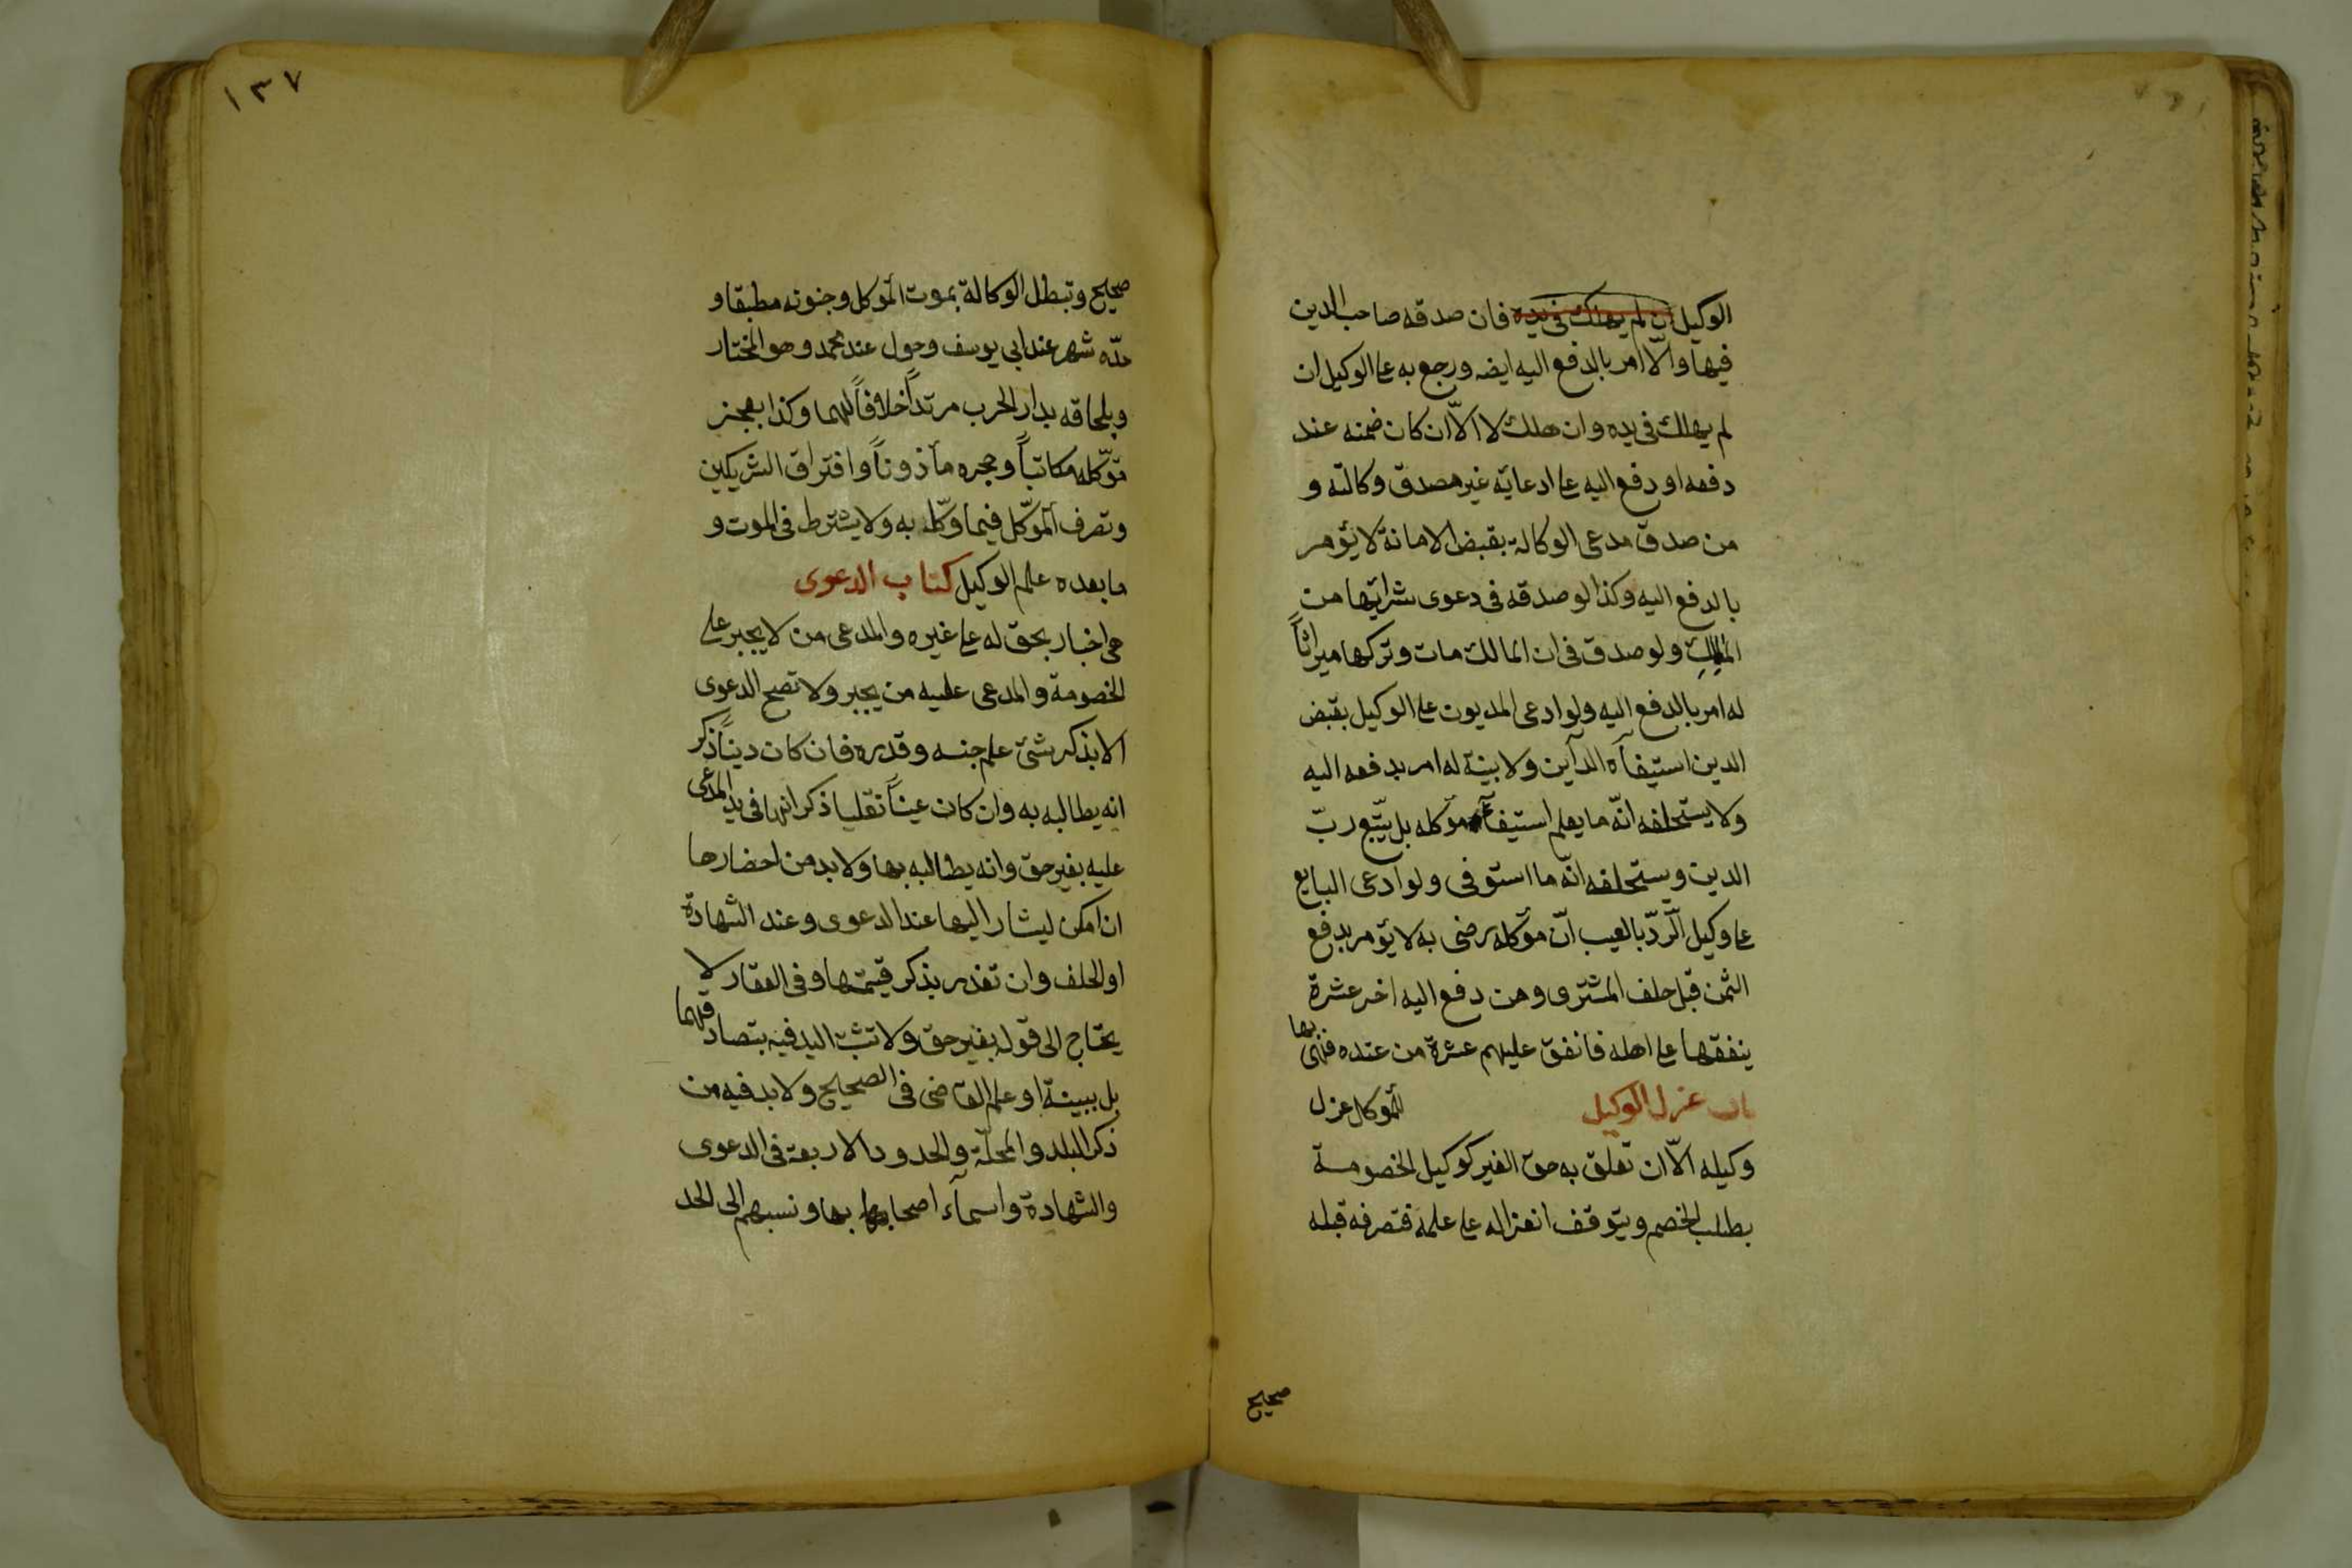 الوكيل ان لم يهلك فى يده فان صدقه صاحب الدين
فيها والّا امر بالدفع اليه ايضه ورجع به على الوكيل ان
لم يهلك فى يده وان هلك لا الّا ان كان ضمنه عند
دفعه او دفع اليه على ادعايه غير مصدق وكالته و
من صدق مدعى الوكالة بقبض الامانة لا يؤمر
بالدفع اليه وكذا لو صدقه فى دعوى شرائها من
المالك ولو صدق فى ان المالك مات وتركها ميراثاً
له امر بالدفع اليه ولو ادعى المديون على الوكيل بقبض
الدين استيفآه الدآين ولا بينة له امر بدفعه اليه
ولا يستحلفه انّه ما يعلم استيفآء موكله بل يتبع ربّ
الدين ويستحلفه انّه ما استوفى ولو ادعى البايع
على وكيل الرّدّ بالعيب انّ موكله رضى به لا يؤمر بدفع
الثمن قبل حلف المشترى ومن دفع اليه اخر عشرة
ينفقها على اهله فانفق عليهم عشرة من عنده فهى بها
باب عزل الوكيل للموكل عزل
وكيله الّا ان تعلق به حق الغير كوكيل الخصومة
بطلب الخصم ويتوقف انعزاله على علمه فتصرفه قبله
صحيح
١٣٧
صحيح وتبطل الوكالة بموت الموكل وجنونه مطبقا و
حدّه شهر عند ابى يوسف وحول عند محمد وهو المختار
وبلحاقه بدار الحرب مرتداً خلافاً لهما وكذا بعجز
موكله مكاتباً وحجره مأذوناً وافتراق الشريكين
وتصرف الموكّل فيما وكّله به ولا يشترط فى الموت و
ما بعده علم الوكيل كتاب الدعوى
هى اخبار بحق له على غيره والمدعى من لا يجبر على
الخصومة والمدعى عليه من يجبر ولا تصح الدعوى
الا بذكر شئ علم جنسه وقدره فان كان ديناً ذكر
انه يطالبه به وان كان عيناً نقليا ذكر انها فى يد المدعى
عليه بغير حق وانه يطالبه بها ولا بد من احضارها
ان امكن ليشار اليها عند الدعوى وعند الشهادة
او الحلف وان تعذر يذكر قيمتها وفى العقار لا
يحتاج الى قوله بغير حق ولا تثبت اليد فيه بتصادقهما
بل ببينة او علم القاضى فى الصحيح ولا بد فيه من
ذكر البلد والمحلّة والحدود الاربعة فى الدعوى
والشهادة واسمآء اصحابها بها ونسبهم الى الحد